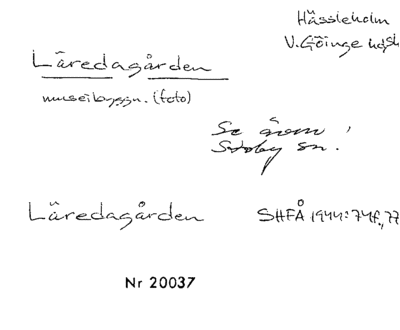 Hässleholm
V. Göinge hdsh
Läredagården
museibyggn. (foto)
Se även
Stoby sn.!
Läredagården SHFÅ 1944:74f., 77
Nr 20037